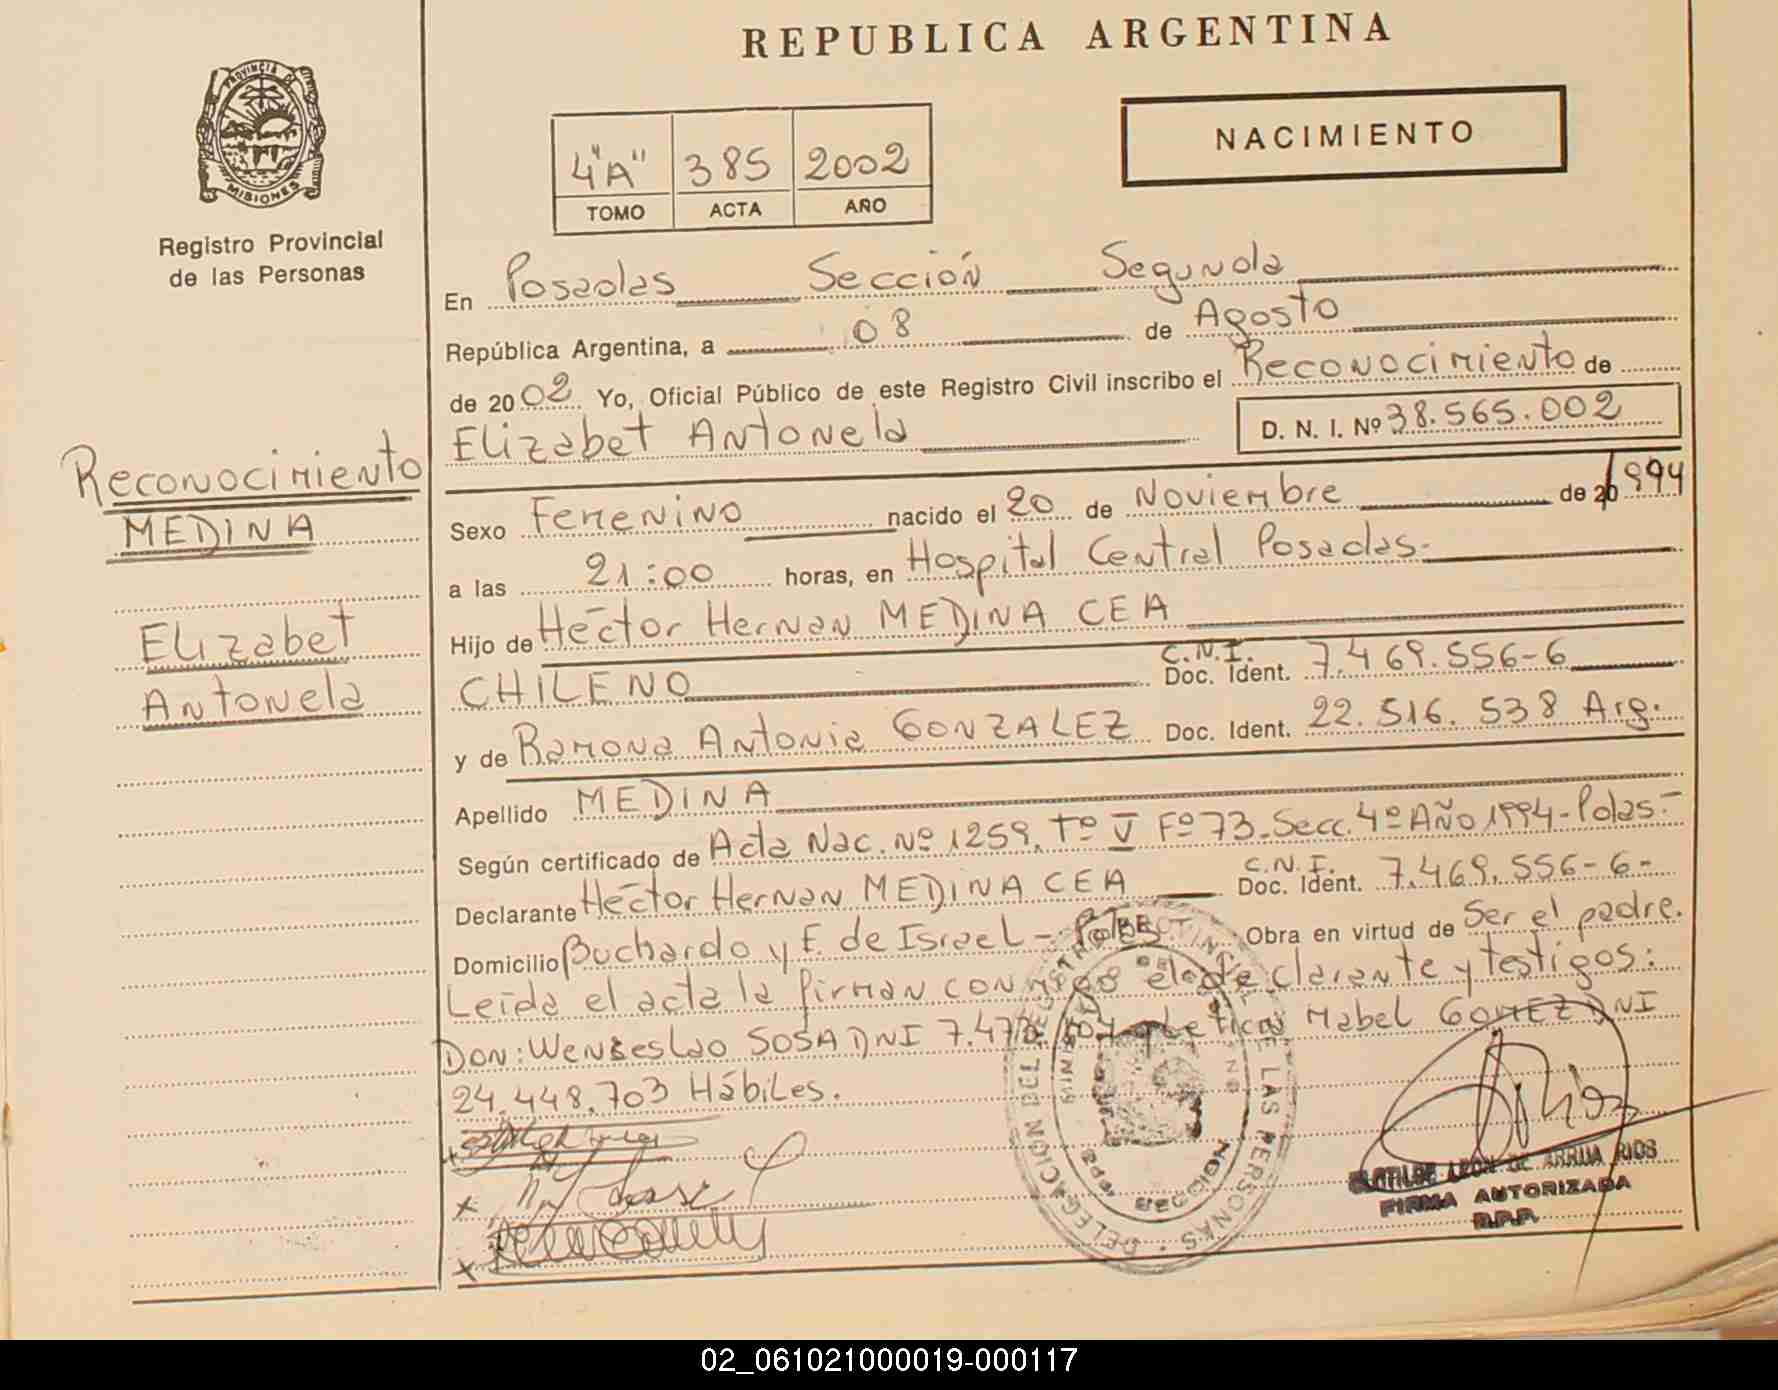 REPUBLICA ARGENTINA
PROVINCIA DE
MISIONES
Registro Provincial
de las Personas
4"A" 385 2002
TOMO ACTA AÑO
NACIMIENTO
En Posadas Sección Segunda
República Argentina, a 08 de Agosto
de 2002 Yo, Oficial Público de este Registro Civil inscribo el Reconocimiento de
Elizabet Antonela D. N. I. Nº 38.565.002
Reconocimiento
MEDINA
Elizabet
Antonela
Sexo Femenino nacido el 20 de Noviembre de 1994
a las 21:00 horas, en Hospital Central Posadas.-
Hijo de Héctor Hernan MEDINA CEA
CHILENO C.N.I. Doc. Ident. 7.469.556-6
y de Ramona Antonia GONZALEZ Doc. Ident. 22.516.538 Arg.
Apellido MEDINA
Según certificado de Acta Nac. Nº 1259. Tº V Fº 73-Secc. 4º Año 1994-Pdas.-
Declarante Héctor Hernan MEDINA CEA C.N.I. Doc. Ident. 7.469.556-6-
Domicilio Buchardo y E. de Israel - Pdas Obra en virtud de Ser el padre.
Leída el acta la firman conmigo el declarante y testigos:
Don: Wenseslao SOSA DNI Mabel GOMEZ DNI
24.448.703 Hábiles.
DELEGACION DEL REGISTRO PROVINCIAL DE LAS PERSONAS
CLOTILDE LEON DE ARRUA RIOS
FIRMA AUTORIZADA
R.P.P.
02_061021000019-000117